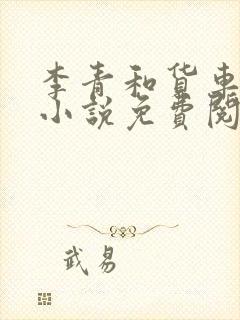 李青和貨車
小說免費閱
武易